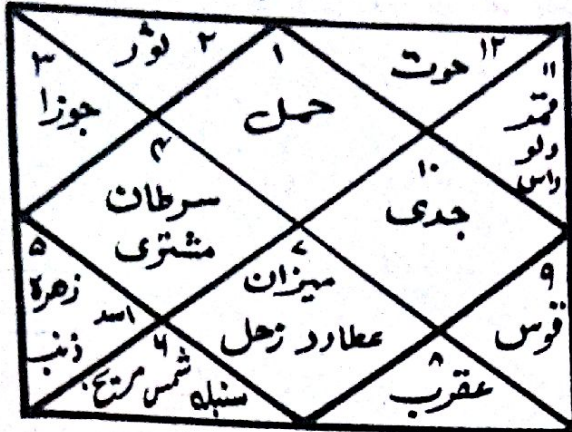 ۱
حمل
۲
ثور
۳
جوزا
۴
سرطان
مشتری
۵
زهره
اسد
ذنب
۶
سنبله شمس مریخ
۷
میزان
عطارد زحل
۸
عقرب
۹
قوس
۱۰
جدی
۱۱
قمر
دلو
راس
۱۲
حوت